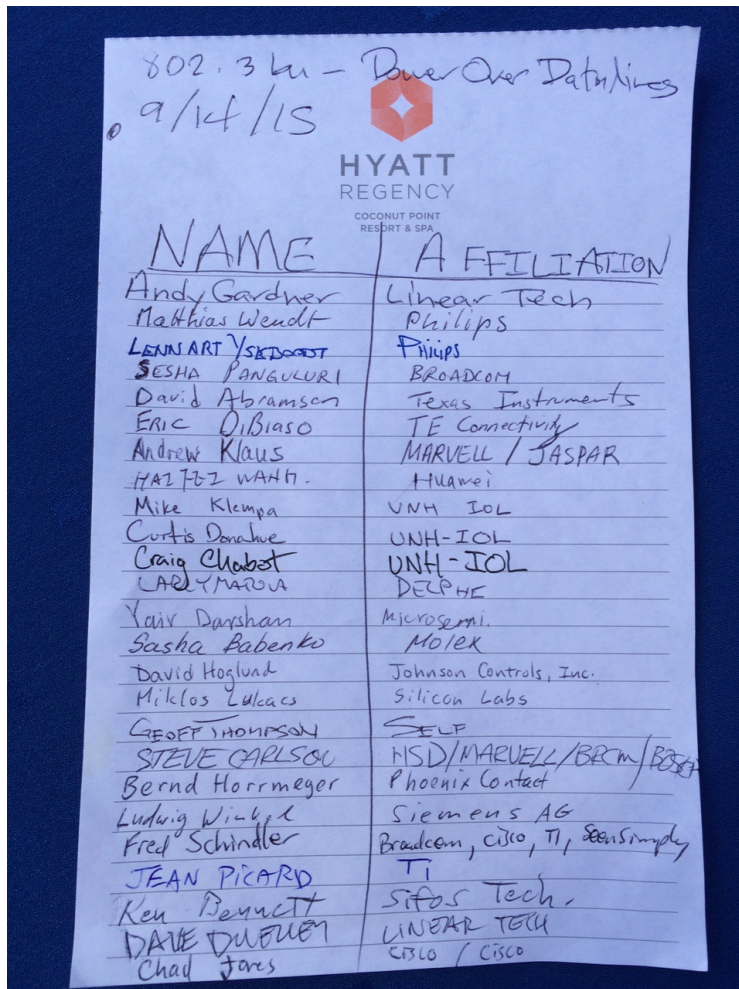 802.3bu - Power Over Datalines
9/14/15
HYATT
REGENCY
COCONUT POINT
RESORT & SPA
NAME AFFILIATION
Andy Gardner Linear Tech
Matthias Wendt Philips
LENNART YSEBOODT Philips
SESHA PANGULURI BROADCOM
David Abramson Texas Instruments
ERIC DiBiaso TE Connectivity
Andrew Klaus MARVELL / JASPAR
WANG. Huawei
Mike Klempa UNH IOL
Curtis Donahue UNH-IOL
Craig Chabot UNH-IOL
DELPHE
Yair Darshan Microsemi.
Sasha Babenko Molex
David Hoglund Johnson Controls, Inc.
Miklos Lukacs Silicon Labs
GEOFF THOMPSON SELF
STEVE CARLSON HSD/MARVELL/BRCM/BOSCH
Bernd Horrmeyer Phoenix Contact
Ludwig Winkel Siemens AG
Fred Schindler Broadcom, Cisco, TI, SeenSimply
JEAN PICARD TI
Ken Bennett Sifos Tech.
DAVE DWELLEY LINEAR TECH
Chad Jones CISCO / CISCO